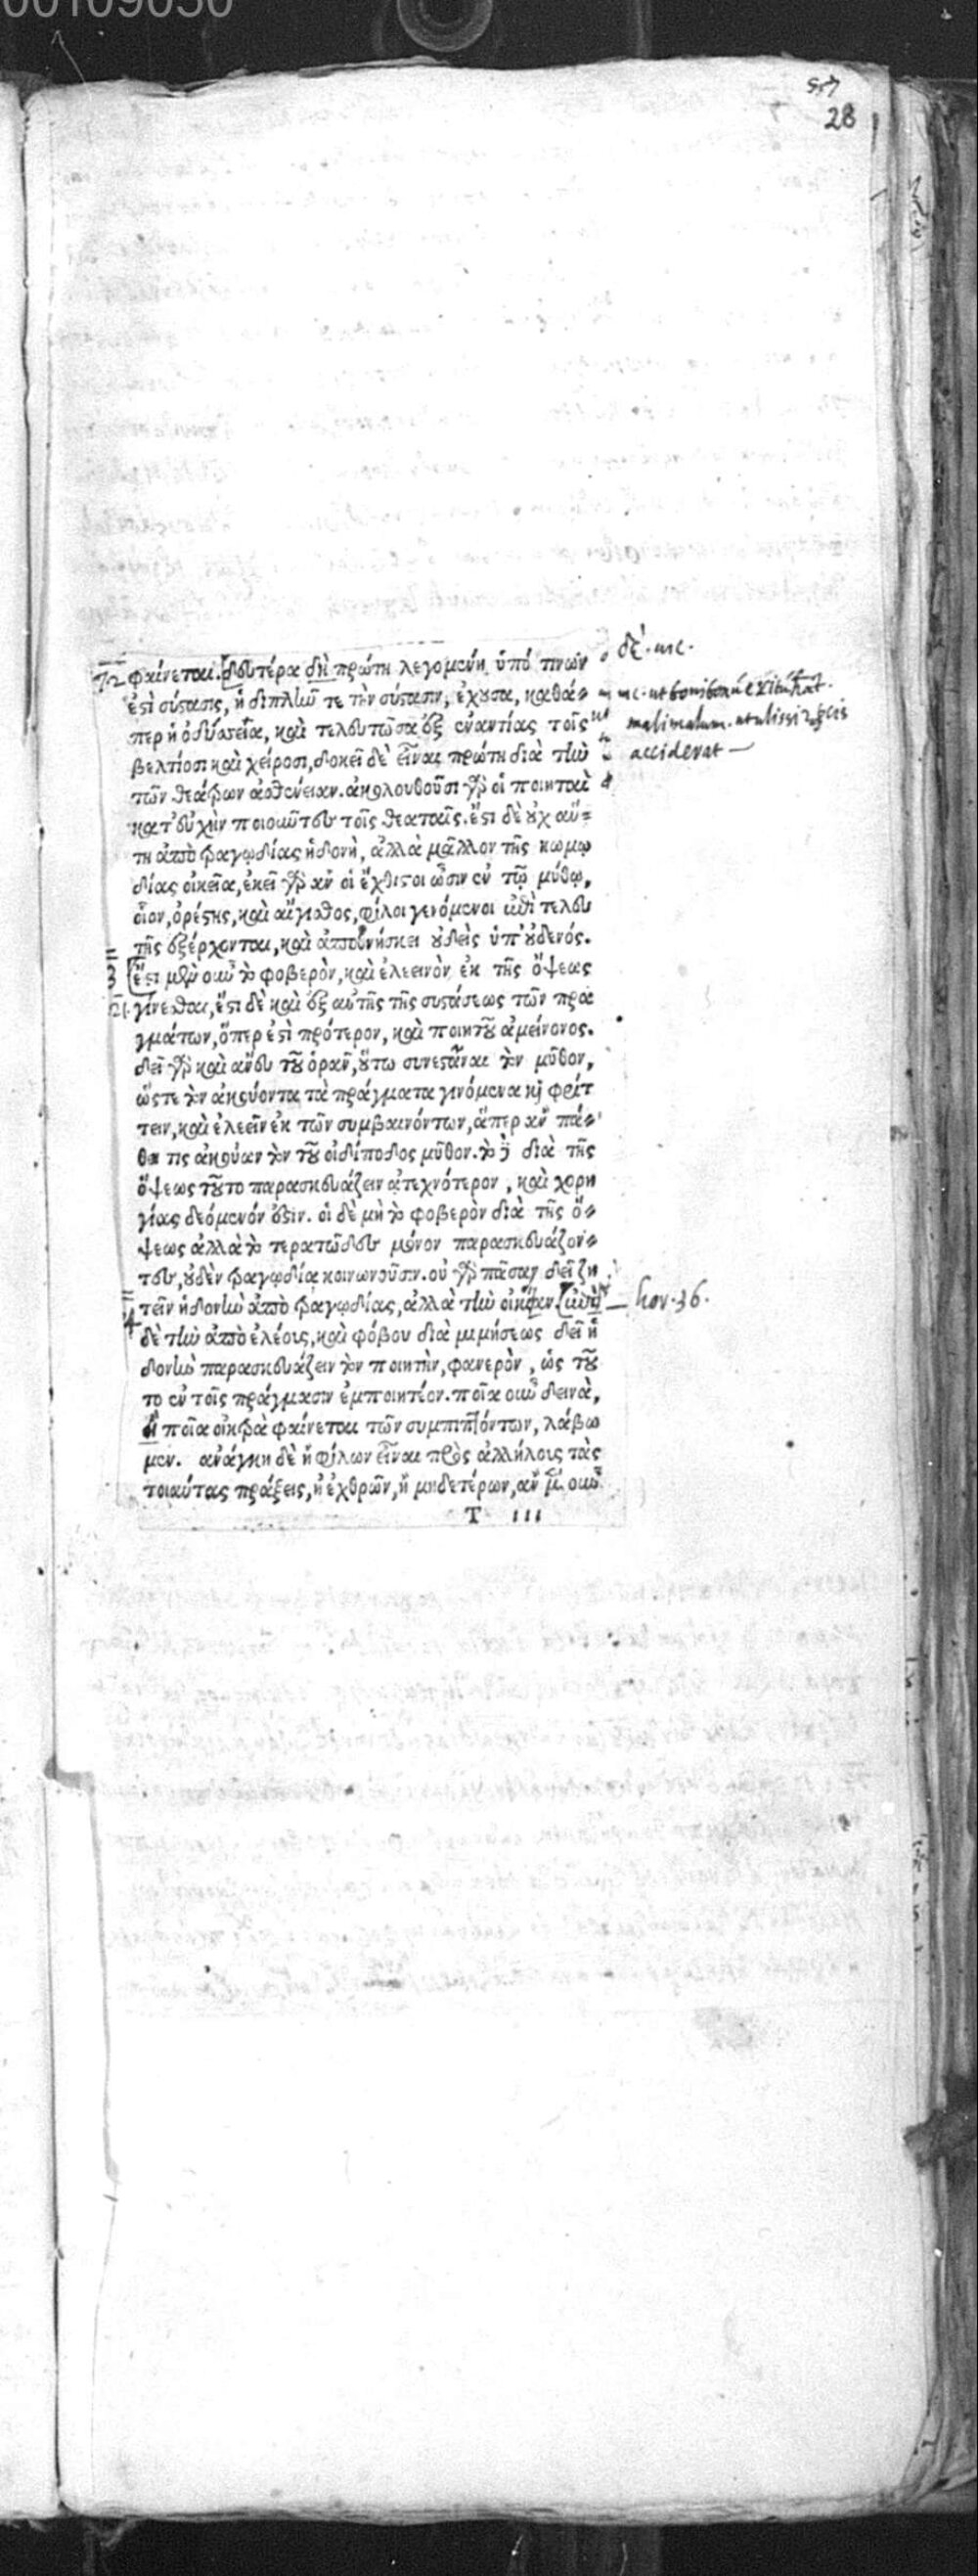 28
φαίνεται. δευτέρα δὴ πρώτη λεγομένη ὑπό τινων
ἐστὶ σύστασις, ἡ διπλῆν τε τὴν σύστασιν, ἔχουσα, καθά-
περ ἡ ὀδύσσεια, καὶ τελευτῶσα ἐξ ἐναντίας τοῖς
βελτίοσι καὶ χείροσι, δοκεῖ δὲ εἶναι πρώτη διὰ τὴν
τῶν θεάτρων ἀσθένειαν. ἀκολουθοῦσι γὰρ οἱ ποιηταὶ
κατ' εὐχὴν ποιοῦντες τοῖς θεαταῖς. ἔστι δὲ οὐχ αὕ-
τη ἀπὸ τραγῳδίας ἡδονὴ, ἀλλὰ μᾶλλον τῆς κωμῳ
δίας οἰκεῖα, ἐκεῖ γὰρ ἂν οἱ ἔχθιστοι ὦσιν ἐν τῷ μύθῳ,
οἷον, ὀρέστης, καὶ αἴγισθος, φίλοι γενόμενοι ἐπὶ τελευ
τῆς ἐξέρχονται, καὶ ἀποθνήσκει οὐδεὶς ὑπ' οὐδενός.
ἔστι μὲν οὖν τὸ φοβερὸν, καὶ ἐλεεινὸν ἐκ τῆς ὄψεως
γίνεσθαι, ἔστι δὲ καὶ ἐξ αὐτῆς τῆς συστάσεως τῶν πρα
γμάτων, ὅπερ ἐστὶ πρότερον, καὶ ποιητοῦ ἀμείνονος.
δεῖ γὰρ καὶ ἄνευ τοῦ ὁρᾶν, οὕτω συνεστᾶναι τὸν μῦθον,
ὥστε τὸν ἀκούοντα τὰ πράγματα γινόμενα καὶ φρίτ
τειν, καὶ ἐλεεῖν ἐκ τῶν συμβαινόντων, ἅπερ ἂν πά-
θοι τις ἀκούων τὸν τοῦ οἰδίποδος μῦθον. τὸ δὲ διὰ τῆς
ὄψεως τοῦτο παρασκευάζειν ἀτεχνότερον, καὶ χορη
γίας δεόμενόν ἐστιν. οἱ δὲ μὴ τὸ φοβερὸν διὰ τῆς ὄ-
ψεως ἀλλὰ τὸ τερατῶδες μόνον παρασκευάζον-
τες, οὐδὲν τραγῳδίᾳ κοινωνοῦσιν. οὐ γὰρ πᾶσαν δεῖ ζη
τεῖν ἡδονὴν ἀπὸ τραγῳδίας, ἀλλὰ τὴν οἰκείαν. ἐπεὶ hor. 36.
δὲ τὴν ἀπὸ ἐλέους, καὶ φόβου διὰ μιμήσεως δεῖ ἡ
δονὴν παρασκευάζειν τὸν ποιητὴν, φανερὸν, ὡς τοῦ
το ἐν τοῖς πράγμασιν ἐμποιητέον. ποῖα οὖν δεινὰ,
ἢ ποῖα οἰκτρὰ φαίνεται τῶν συμπιπτόντων, λάβω
μεν. ἀνάγκη δὲ ἢ φίλων εἶναι πρὸς ἀλλήλους τὰς
τοιαύτας πράξεις, ἢ ἐχθρῶν, ἢ μηδετέρων, ἂν μὲν οὖν
T iii
accidevat